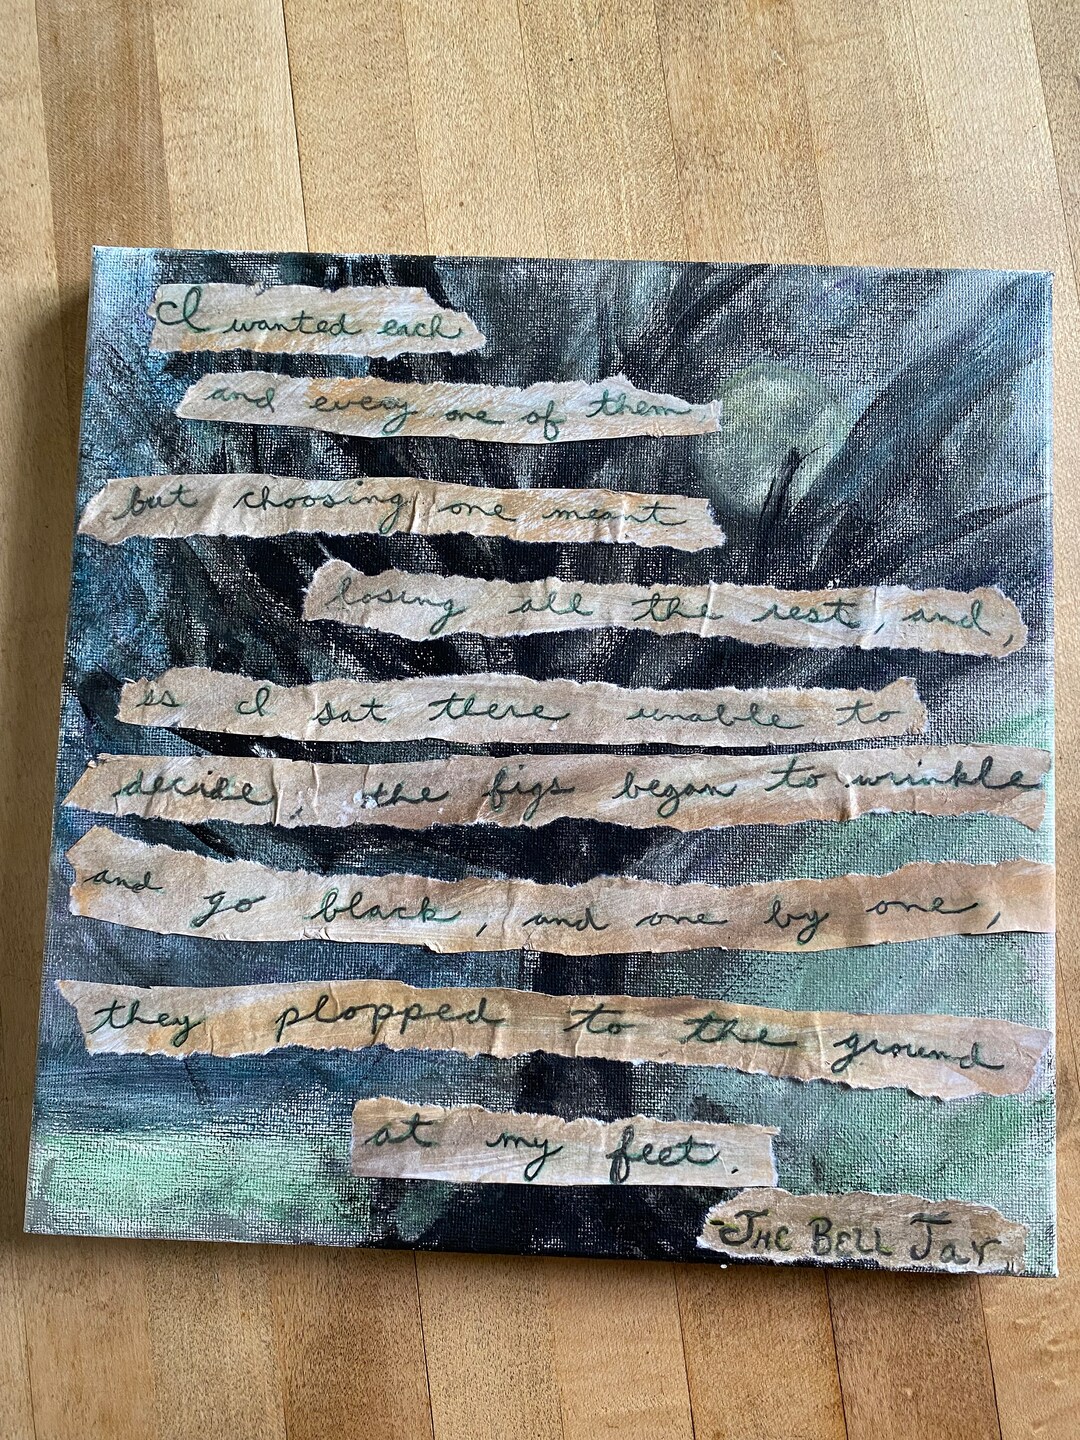 I wanted each
and every one of them,
but choosing one meant
losing all the rest, and,
as I sat there unable to
decide, the figs began to wrinkle
and go black, and one by one,
they plopped to the ground
at my feet.
-The Bell Jar